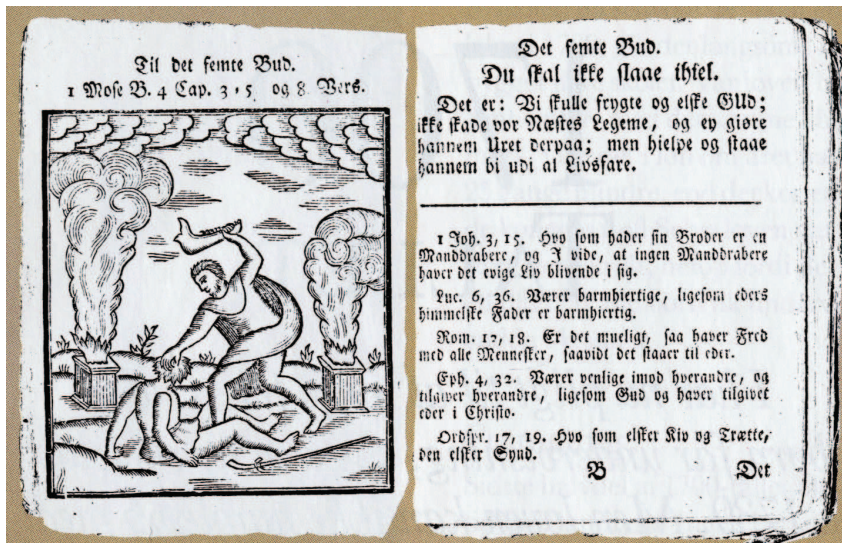 Til det femte Bud.
1 Mose B. 4 Cap. 3, 5. og 8. Vers.
Det femte Bud.
Du skal ikke slaae ihiel.
Det er: Vi skulle frygte og elske GUd;
ikke skade vor Næstes Legeme, og ey giøre
hannem Uret derpaa; men hielpe og staae
hannem bi udi al Livsfare.
1 Joh. 3, 15. Hvo som hader sin Broder er en
Manddrabere, og I vide, at ingen Manddrabere
haver det evige Liv blivende i sig.
Luc. 6, 36. Værer barmhiertige, ligesom eders
himmelske Fader er barmhiertig.
Rom. 12, 18. Er det mueligt, saa haver Fred
med alle Mennesker, saavidt det staaer til eder.
Eph. 4, 32. Værer venlige imod hverandre, og
tilgiver hverandre, ligesom Gud og haver tilgivet
eder i Christo.
Ordspr. 17, 19. Hvo som elsker Kiv og Trætte,
den elsker Synd.
B Det